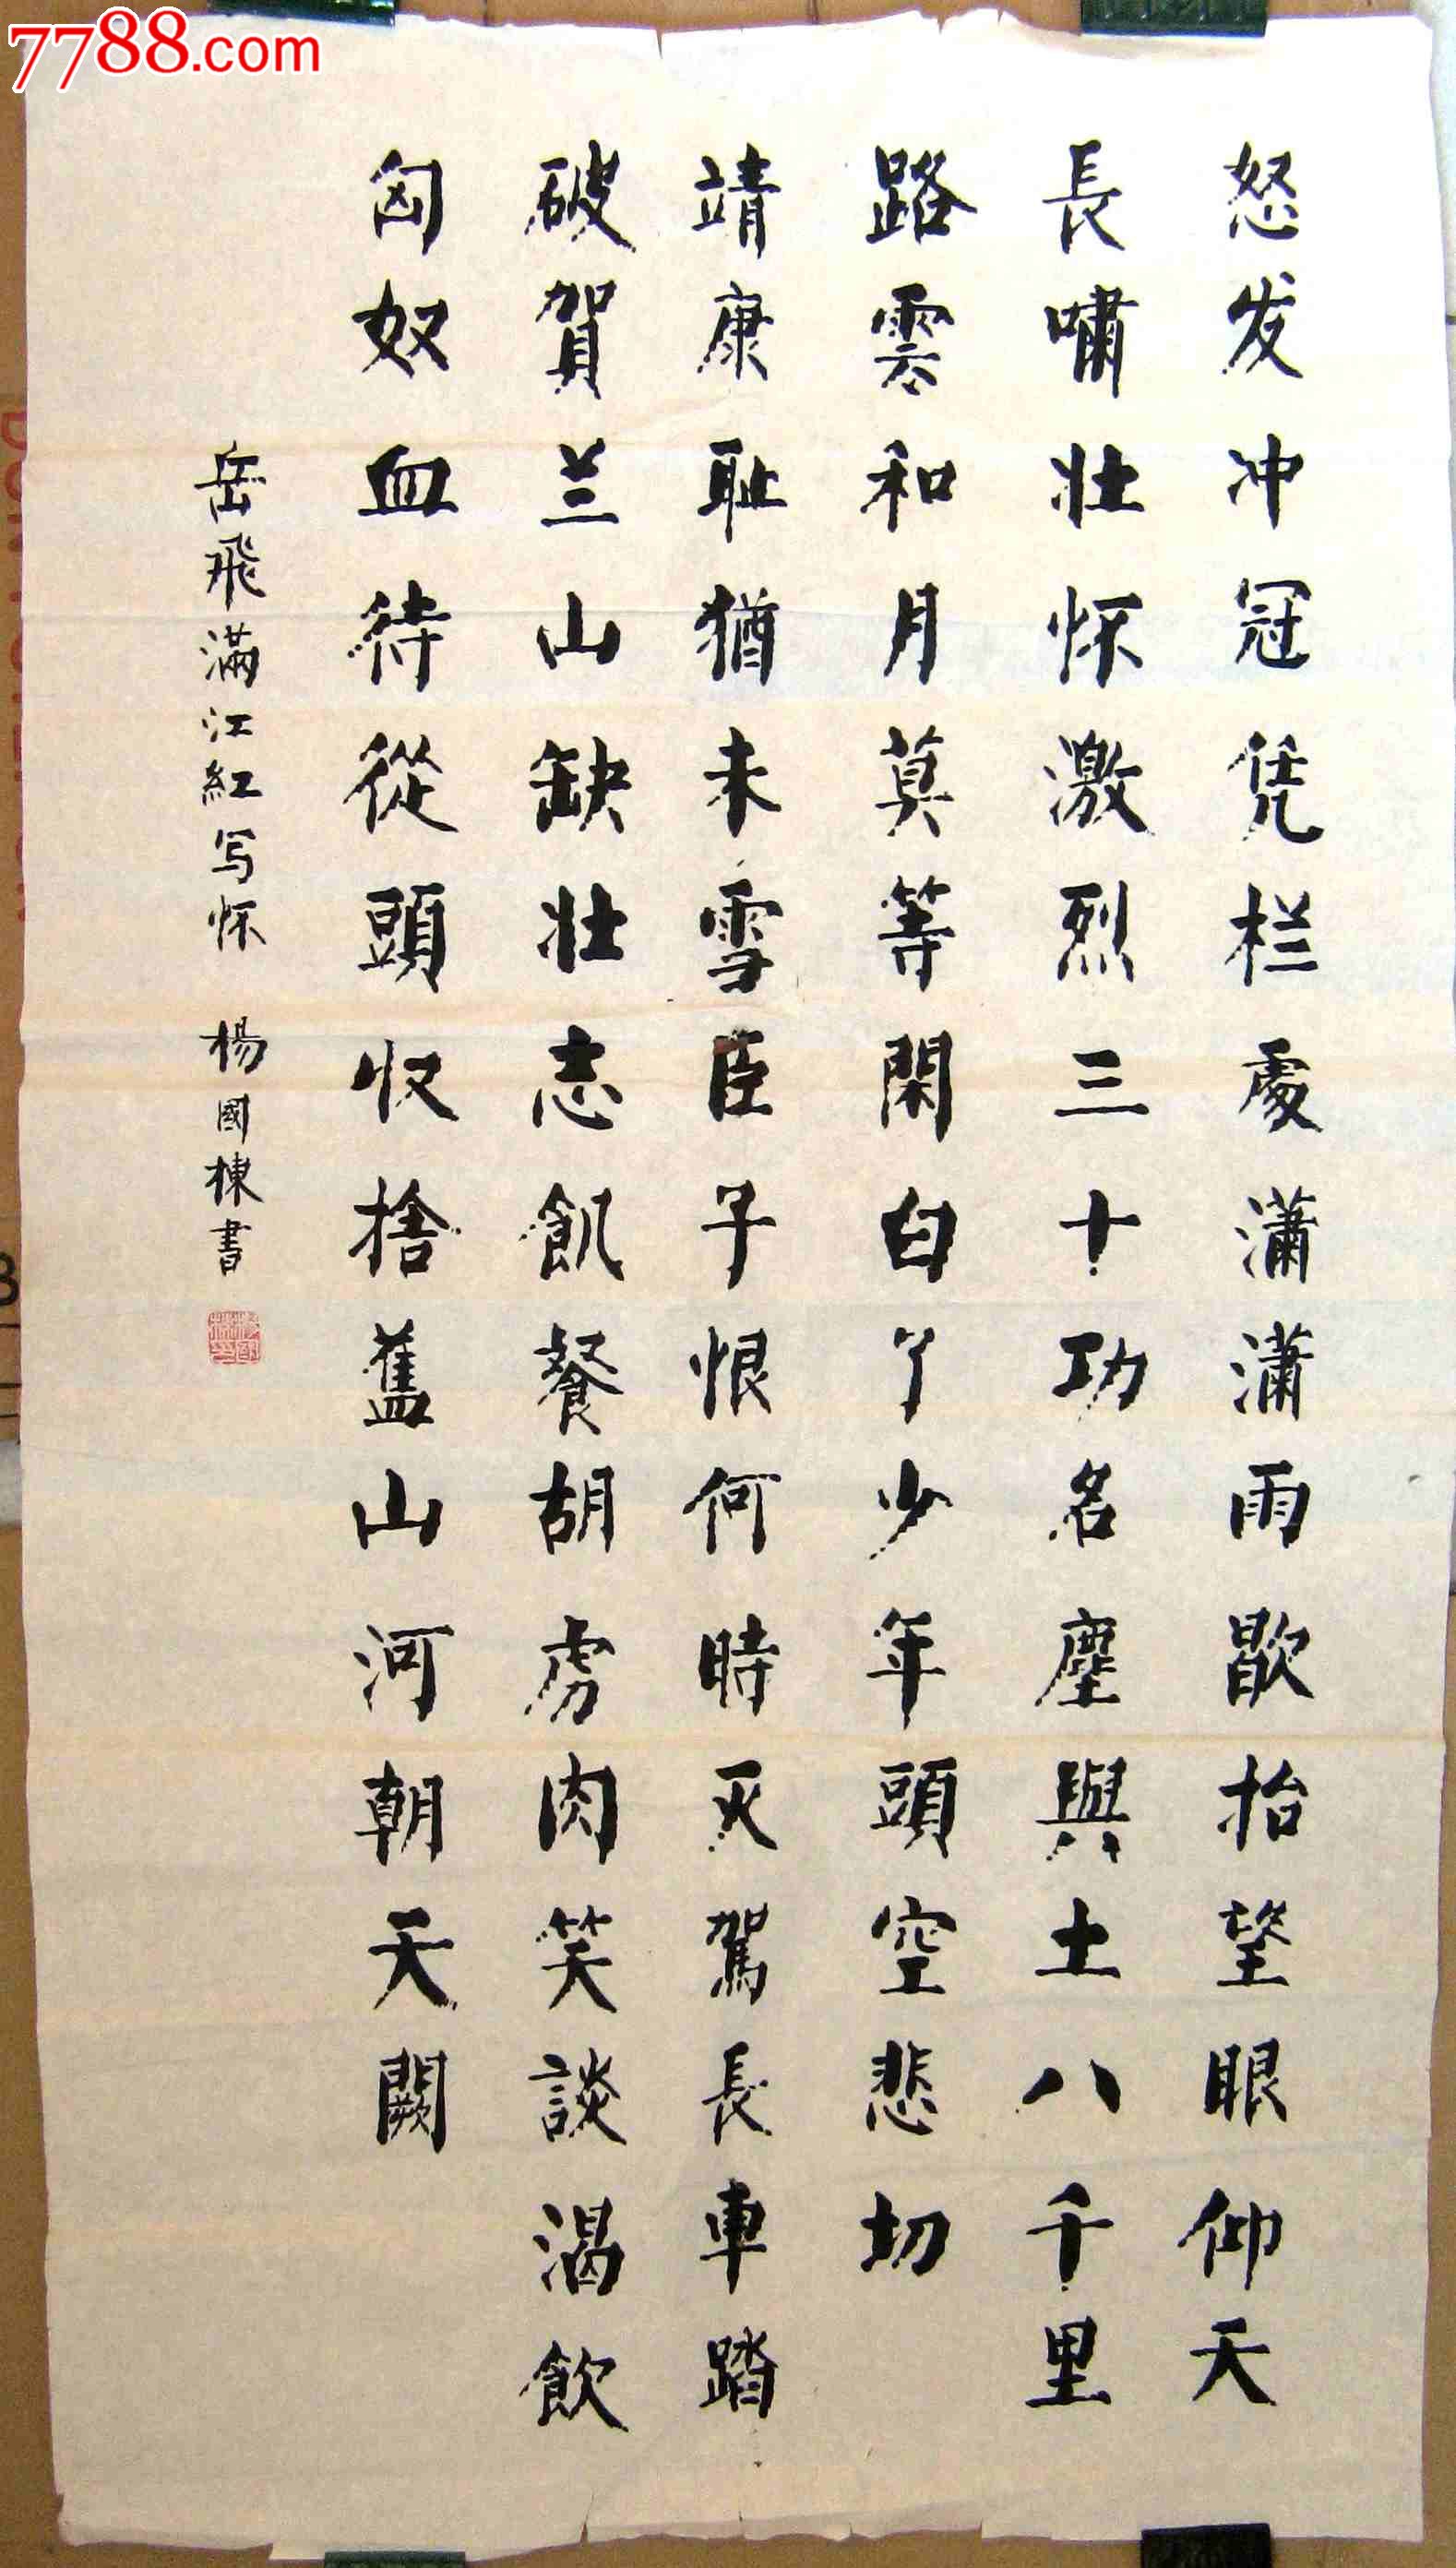 7788.com
怒发冲冠凭栏處瀟瀟雨歇抬望眼仰天
長嘯壮怀激烈三十功名塵與土八千里
路雲和月莫等閑白了少年頭空悲切
靖康耻猶未雪臣子恨何時灭駕長車踏
破賀兰山缺壮志飢餐胡虜肉笑談渴飲
匈奴血待從頭收捨舊山河朝天闕
岳飛滿江紅写怀 楊國棟書